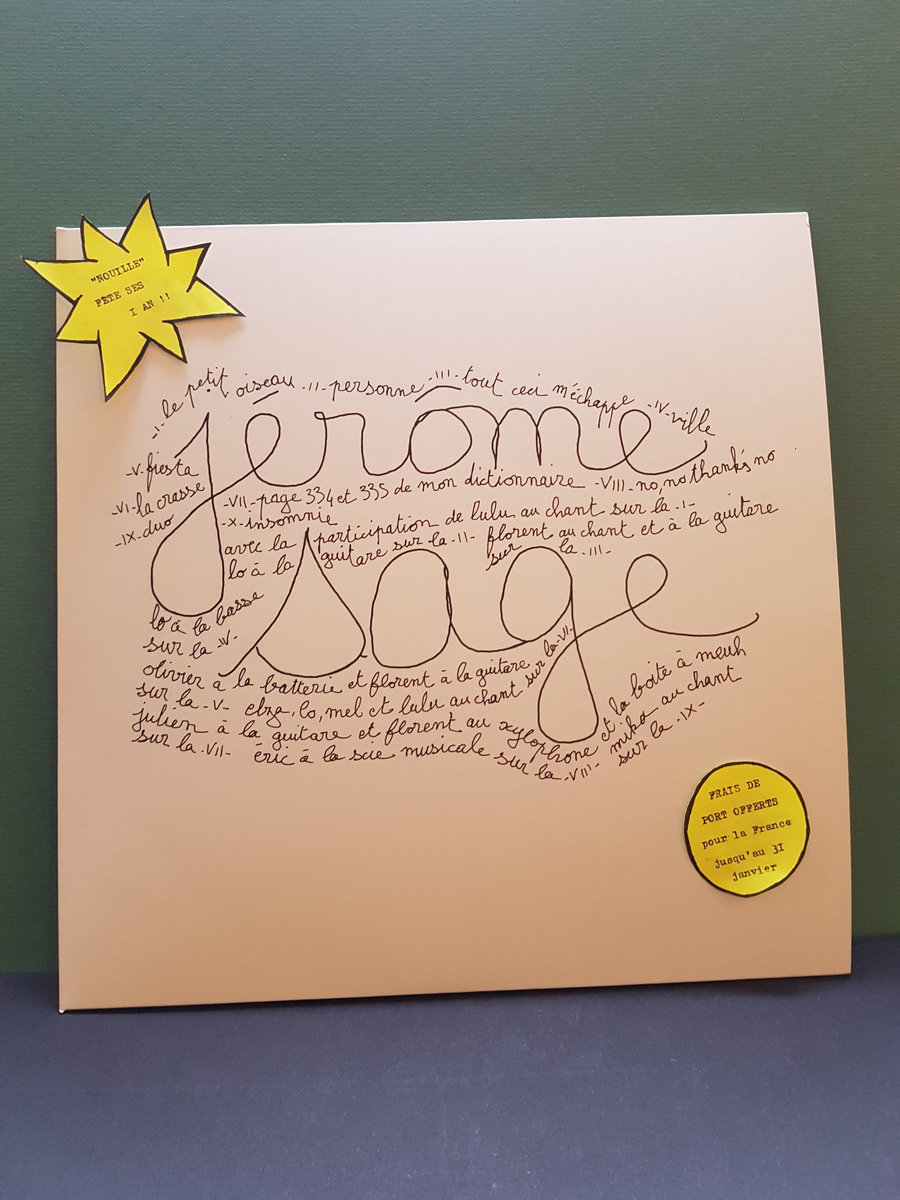 "NOUILLE"
FÊTE SES
I AN !!
-I- le petit oiseau -II- personne -III- tout ceci m'échappe -IV- ville
jérôme
-V- fiesta
-VI- la crasse
-VII- page 334 et 335 de mon dictionnaire -VIII- no, no thank's no
-IX- duo
-X- insomnie
avec la participation de lulu au chant sur la -I-
lo à la guitare sur la -II- florent au chant et à la guitare
sur la -III-
sage
lo à la basse
sur la -IV-
olivier à la batterie et florent à la guitare
sur la -V- elza, lo, mel et lulu au chant sur la -VI-
julien à la guitare et florent au xylophone et la boite à meuh
sur la -VII- éric à la scie musicale sur la -VIII- miko au chant
sur la -IX-
FRAIS DE
PORT OFFERTS
pour la France
jusqu'au 3I
janvier